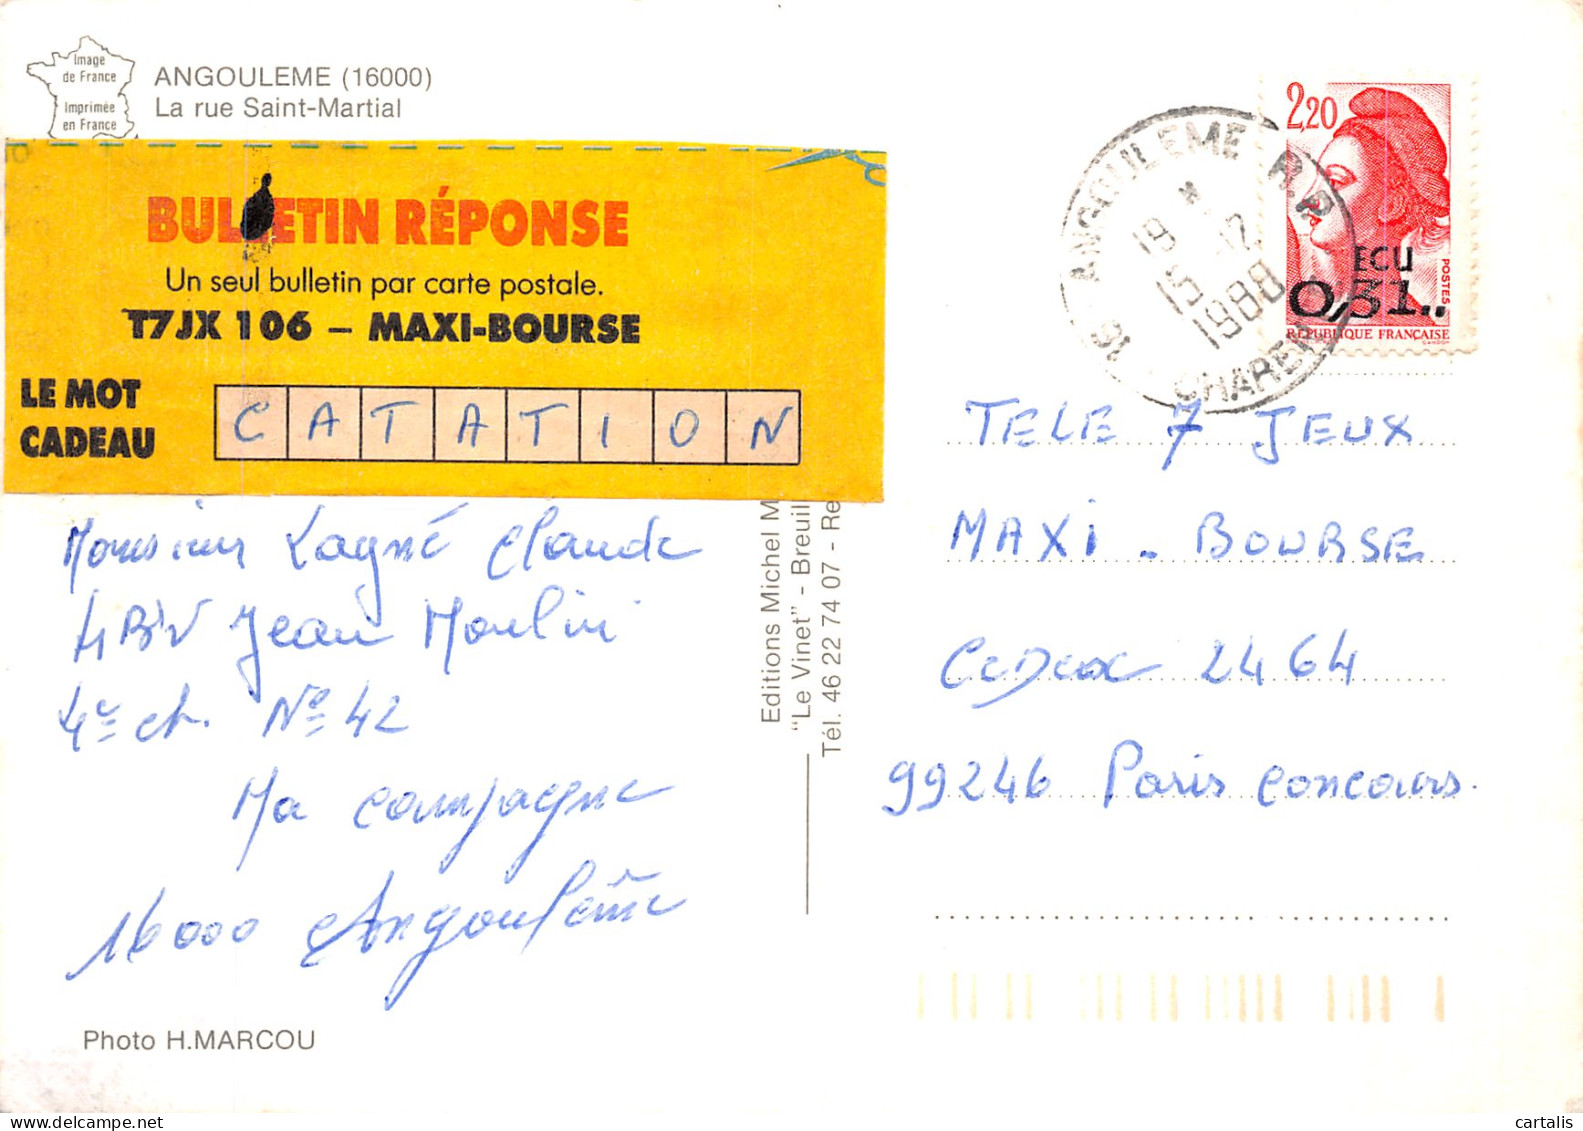 Image
de France
Imprimée
en France
ANGOULEME (16000)
La rue Saint-Martial
BULLETIN RÉPONSE
Un seul bulletin par carte postale.
T7JX 106 – MAXI-BOURSE
LE MOT
CADEAU
CATATION
Monsieur Lagné Claude
4 Bd Jean Moulin
4e ch. No 42
Ma campagne
16000 Angoulême
Photo H.MARCOU
Editions Michel M
"Le Vinet" - Breuil
Tél. 46 22 74 07 - Re
16 ANGOULEME R.P.
19 H
15 12
1988
CHAREN
2,20
ECU
0,31..
POSTES
REPUBLIQUE FRANÇAISE
GANDON
TELE 7 JEUX
MAXI - BOURSE
CEDEX 2464
99246 Paris Concours.
cartalis